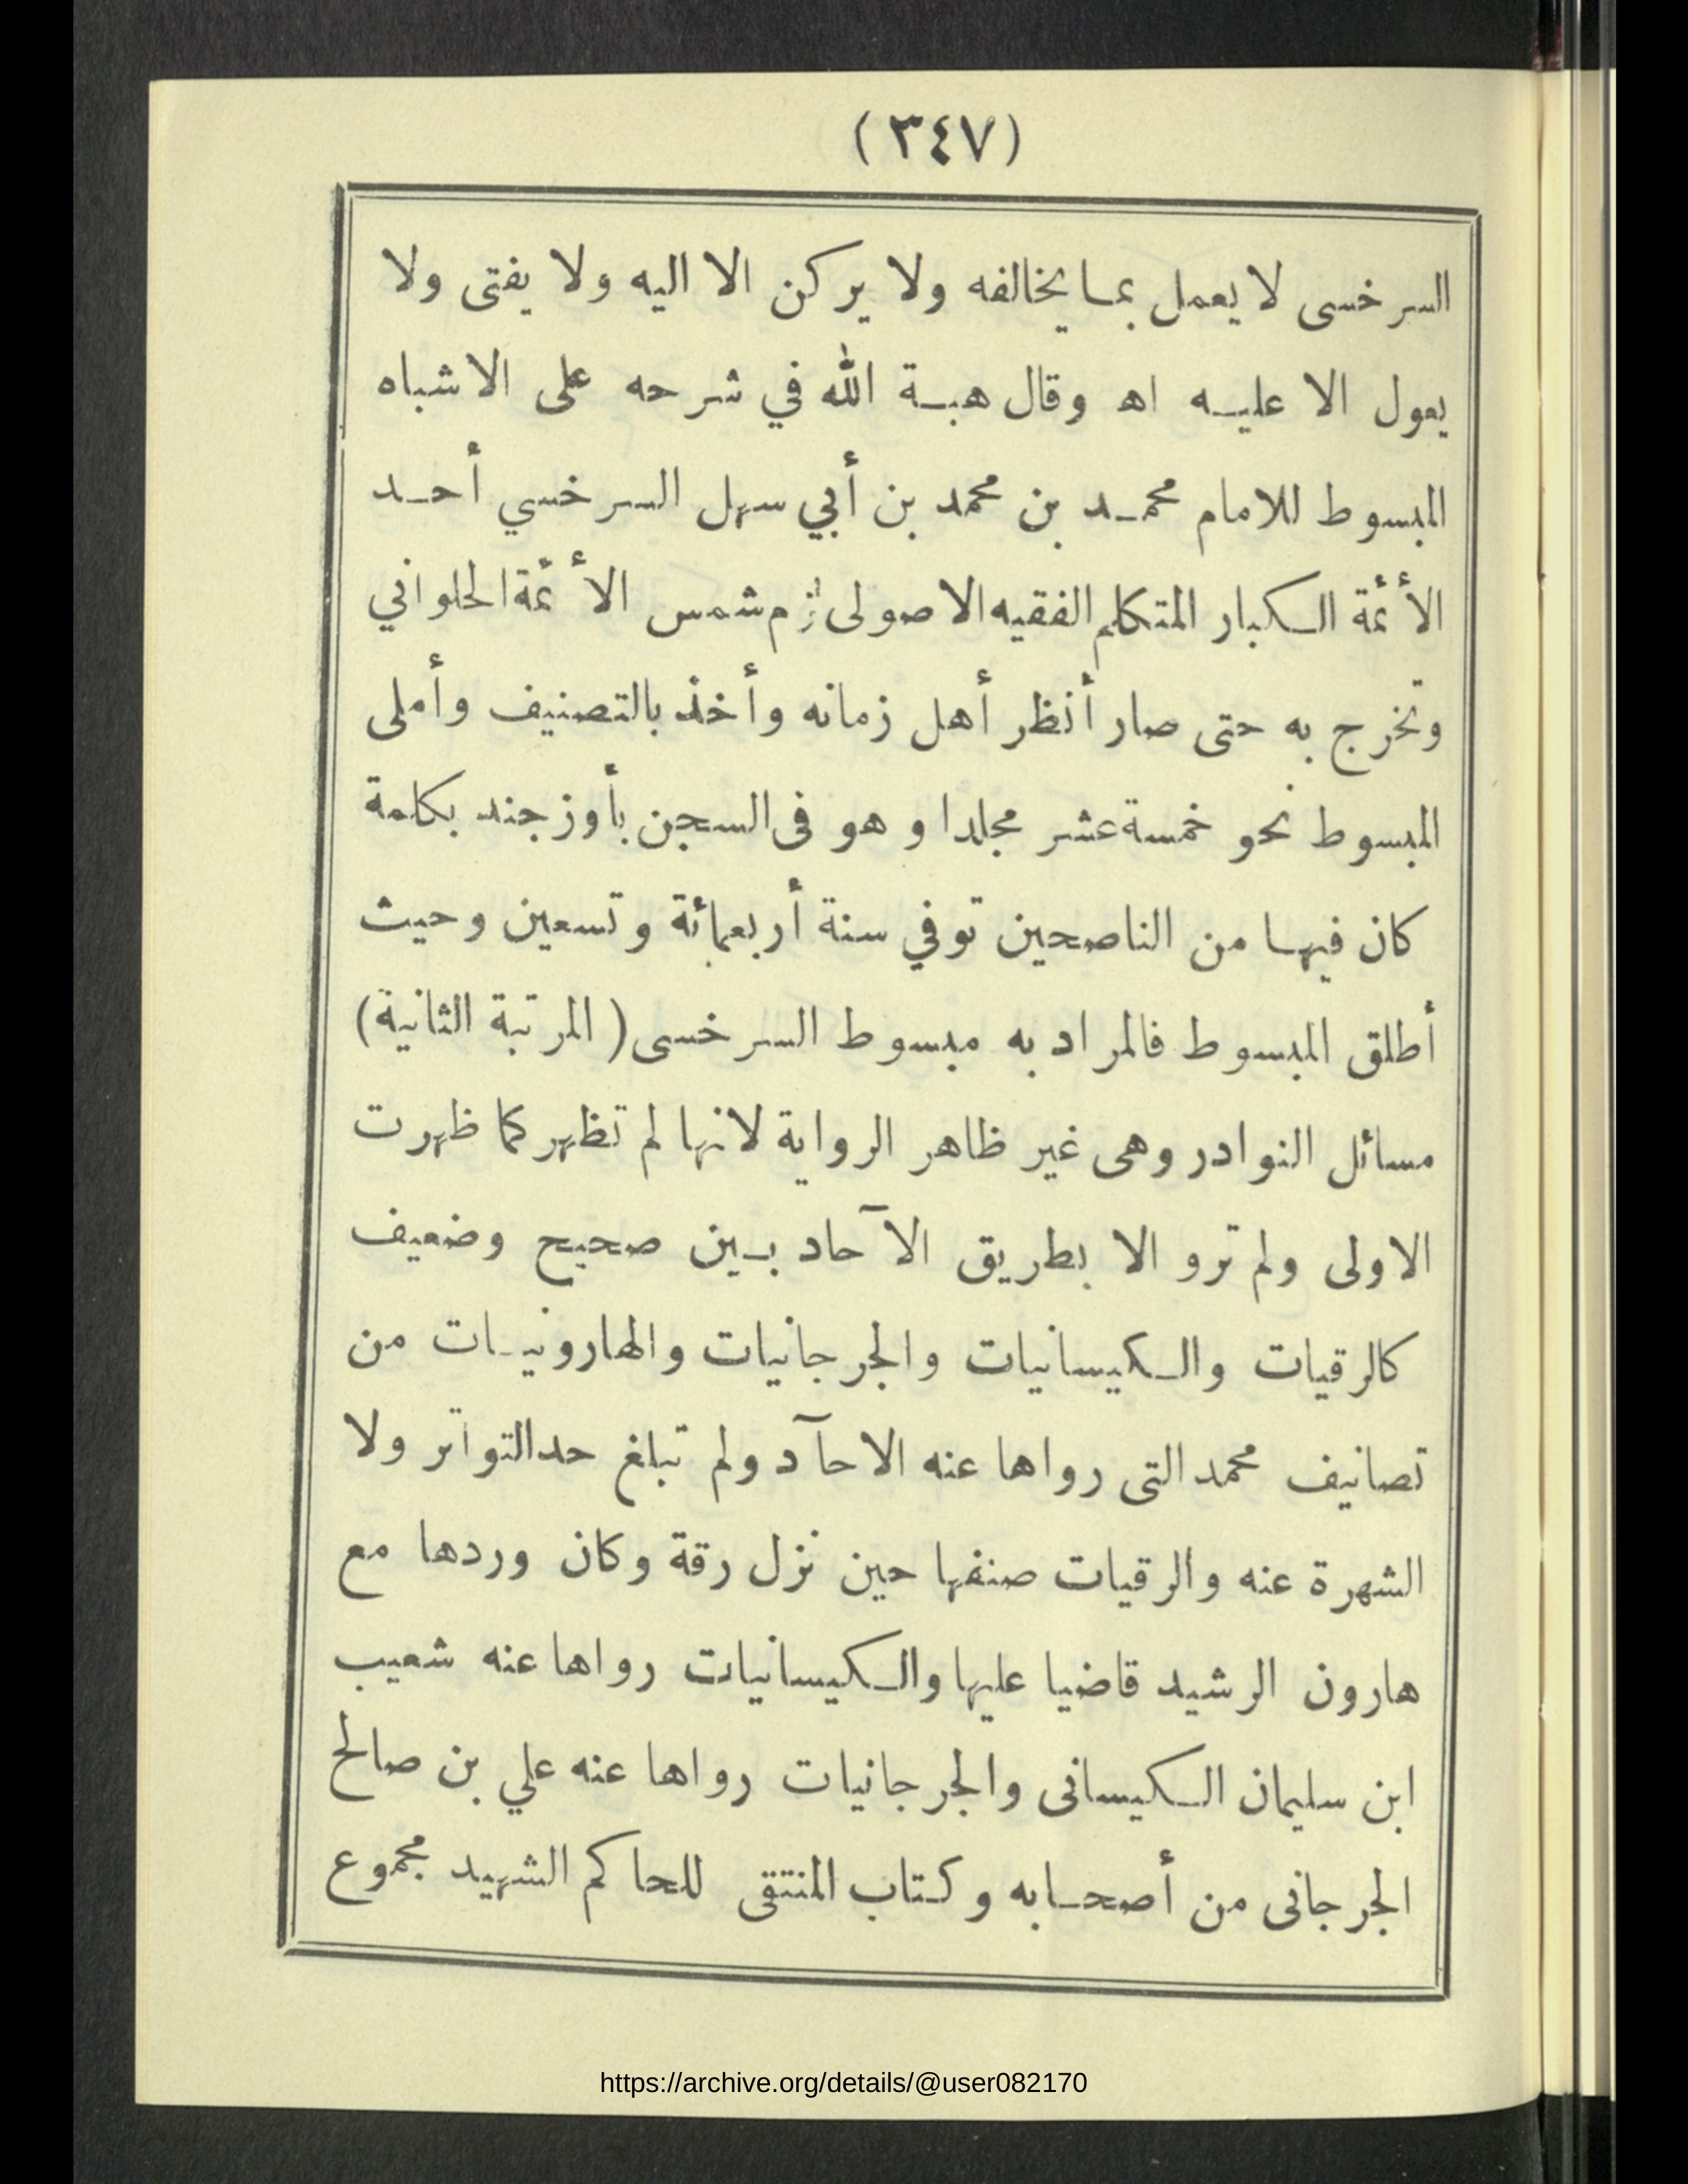 (٣٤٧)
السرخسى لا يعمل بما يخالفه ولا يركن الا اليه ولا يفتى ولا
يعول الا عليه اه وقال هبة الله في شرحه على الاشباه
المبسوط للامام محمد بن محمد بن أبي سهل السرخسي أحد
الأئمة الكبار المتكلم الفقيه الاصولى لزم شمس الأئمة الحلواني
وتخرج به حتى صار أنظر أهل زمانه وأخذ بالتصنيف وأملى
المبسوط نحو خمسة عشر مجلدا وهو فى السجن بأوزجند بكلمة
كان فيها من الناصحين توفي سنة أربعمائة وتسعين وحيث
أطلق المبسوط فالمراد به مبسوط السرخسى (المرتبة الثانية)
مسائل النوادر وهى غير ظاهر الرواية لانها لم تظهر كما ظهرت
الاولى ولم ترو الا بطريق الآحاد بين صحيح وضعيف
كالرقيات والكيسانيات والجرجانيات والهارونيات من
تصانيف محمد التى رواها عنه الاحآد ولم تبلغ حد التواتر ولا
الشهرة عنه والرقيات صنفها حين نزل رقة وكان وردها مع
هارون الرشيد قاضيا عليها والكيسانيات رواها عنه شعيب
ابن سليمان الكيسانى والجرجانيات رواها عنه علي بن صالح
الجرجانى من أصحابه وكتاب المنتقى للحاكم الشهيد مجموع
https://archive.org/details/@user082170